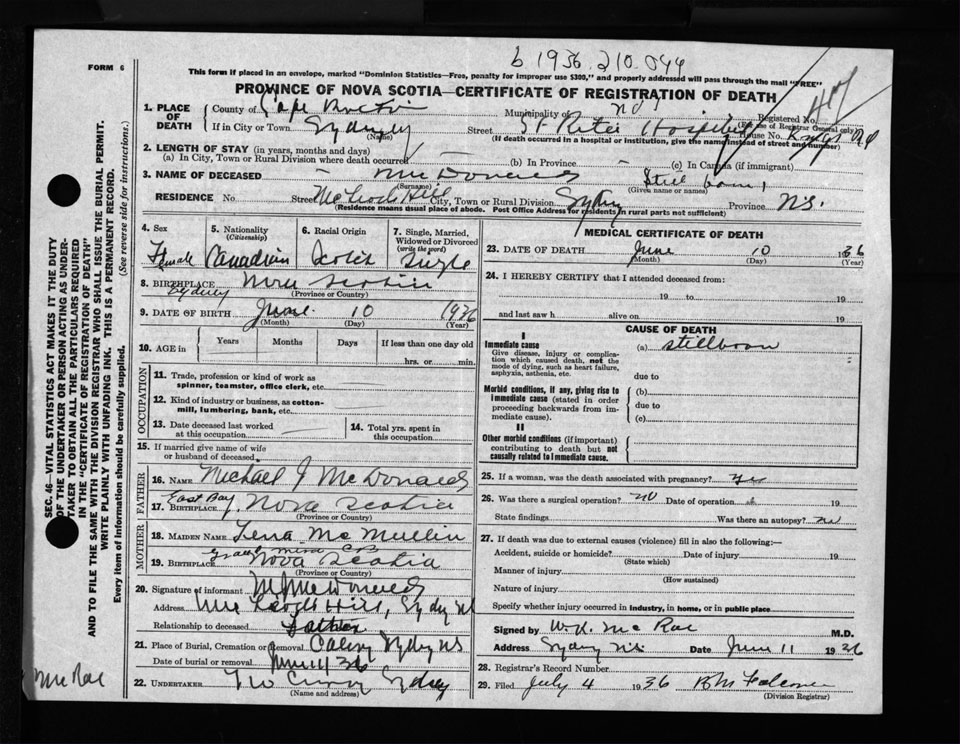 b 1936 210 044
FORM 6
This form if placed in an envelope, marked "Dominion Statistics—Free, penalty for improper use $300," and properly addressed will pass through the mail "FREE"
PROVINCE OF NOVA SCOTIA—CERTIFICATE OF REGISTRATION OF DEATH
1. PLACE OF DEATH
County of Cape Breton
Municipality of
Registered No.
(For use of Registrar General only)
If in City or Town Sydney
(Name)
Street St Rita Hospital
House No.
(If death occurred in a hospital or institution, give the name instead of street and number)
2. LENGTH OF STAY (in years, months and days)
(a) In City, Town or Rural Division where death occurred
(b) In Province
(c) In Canada (if immigrant)
3. NAME OF DECEASED McDonald Still born
(Surname) (Given name or names)
RESIDENCE No. Street McLeods Hill City, Town or Rural Division Sydney Province N.S.
(Residence means usual place of abode. Post Office Address for residents in rural parts not sufficient)
4. Sex
Female
5. Nationality
(Citizenship)
Canadian
6. Racial Origin
Scotch
7. Single, Married, Widowed or Divorced
(write the word)
Single
8. BIRTHPLACE Sydney Nova Scotia
(Province or Country)
9. DATE OF BIRTH June 10 1936
(Month) (Day) (Year)
10. AGE in
Years Months Days If less than one day old
hrs. or min.
OCCUPATION
11. Trade, profession or kind of work as spinner, teamster, office clerk, etc.
12. Kind of industry or business, as cotton-mill, lumbering, bank, etc.
13. Date deceased last worked at this occupation
14. Total yrs. spent in this occupation
15. If married give name of wife or husband of deceased
FATHER
16. NAME Michael J McDonald
17. BIRTHPLACE East Bay, Nova Scotia
(Province or Country)
MOTHER
18. MAIDEN NAME Lena McMullin
19. BIRTHPLACE Grand Mira CB Nova Scotia
(Province or Country)
20. Signature of informant M McDonald
Address McLeods Hill, Sydney NS
Relationship to deceased Father
21. Place of Burial, Cremation or Removal Calvary Sydney NS
Date of burial or removal June 11 36
22. UNDERTAKER TW Curry Sydney
(Name and address)
MEDICAL CERTIFICATE OF DEATH
23. DATE OF DEATH June 10 1936
(Month) (Day) (Year)
24. I HEREBY CERTIFY that I attended deceased from
19 to 19
and last saw h alive on 19
CAUSE OF DEATH
I
Immediate cause
Give disease, injury or complication which caused death, not the mode of dying, such as heart failure, asphyxia, asthenia, etc.
(a) stillborn
due to
Morbid conditions, if any, giving rise to immediate cause (stated in order proceeding backwards from immediate cause).
(b)
due to
(c)
II
Other morbid conditions (if important) contributing to death but not causally related to immediate cause.
25. If a woman, was the death associated with pregnancy? yes
26. Was there a surgical operation? no Date of operation
State findings Was there an autopsy? no
27. If death was due to external causes (violence) fill in also the following:—
Accident, suicide or homicide? Date of injury 19
(State which)
Manner of injury
(How sustained)
Nature of injury
Specify whether injury occurred in industry, in home, or in public place
Signed by W.K. McRae M.D.
Address Sydney N.S. Date June 11 1936
28. Registrar's Record Number
29. Filed July 4 1936
(Division Registrar)
SEC. 46—VITAL STATISTICS ACT MAKES IT THE DUTY
OF THE UNDERTAKER OR PERSON ACTING AS UNDER-
TAKER TO OBTAIN ALL THE PARTICULARS REQUIRED
IN THE "CERTIFICATE OF REGISTRATION OF DEATH"
AND TO FILE THE SAME WITH THE DIVISION REGISTRAR WHO SHALL ISSUE THE BURIAL PERMIT.
WRITE PLAINLY WITH UNFADING INK. THIS IS A PERMANENT RECORD.
Every item of information should be carefully supplied. (See reverse side for instructions.)
McRae